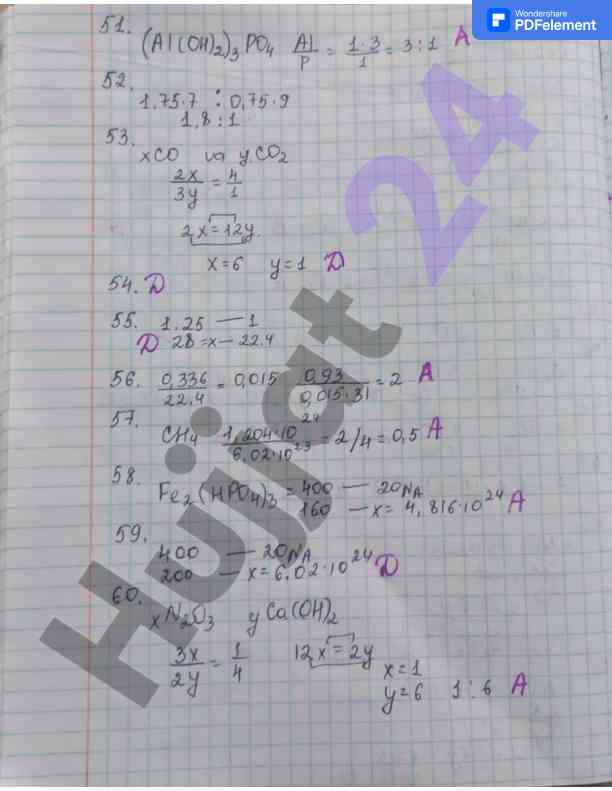 Wondershare
PDFelement
51. (Al(OH)₂)₃PO₄ Al/P = 1·3/1 = 3:1 A
52. 1.75·7 : 0,75·9
1,8:1
53. xCO va yCO₂
2x/3y = 4/1
2x=12y.
x=6 y=1 D
54. D
55. 1.25 — 1
D 28 =x— 22.4
56. 0,336/22,4 = 0,015 0,93/0,015·31 = 2 A
57. CH₄ 1,204·10²⁴/6,02·10²³ = 2/4 = 0,5 A
58. Fe₂(HPO₄)₃ = 400 — 20NA
160 — x= 4,816·10²⁴ A
59. 400 — 20NA
200 — x= 6.02·10²⁴ D
60. xN₂O₃ yCa(OH)₂
3x/2y = 1/4 12x=2y
x=1
y=6 1:6 A
Hujjat 24